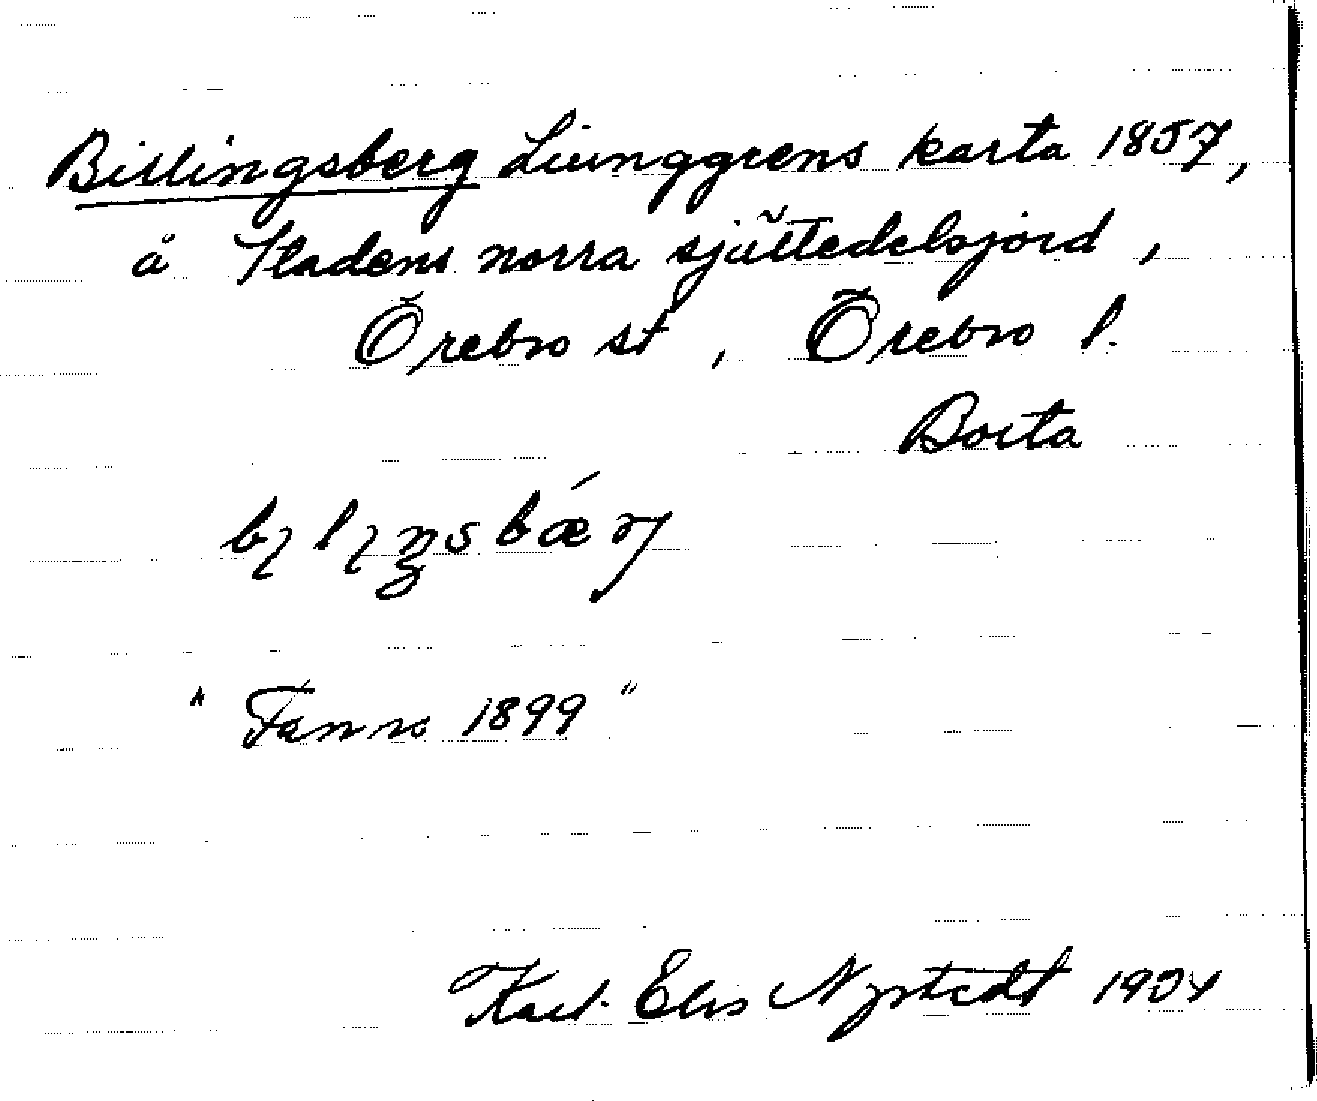 Billingsberg Liunggrens karta 1857,
å Stadens norra sjättedelsjord,
Örebro st, Örebro l.
Borta
"Fanns 1899"
Karl-Elis Nystedt